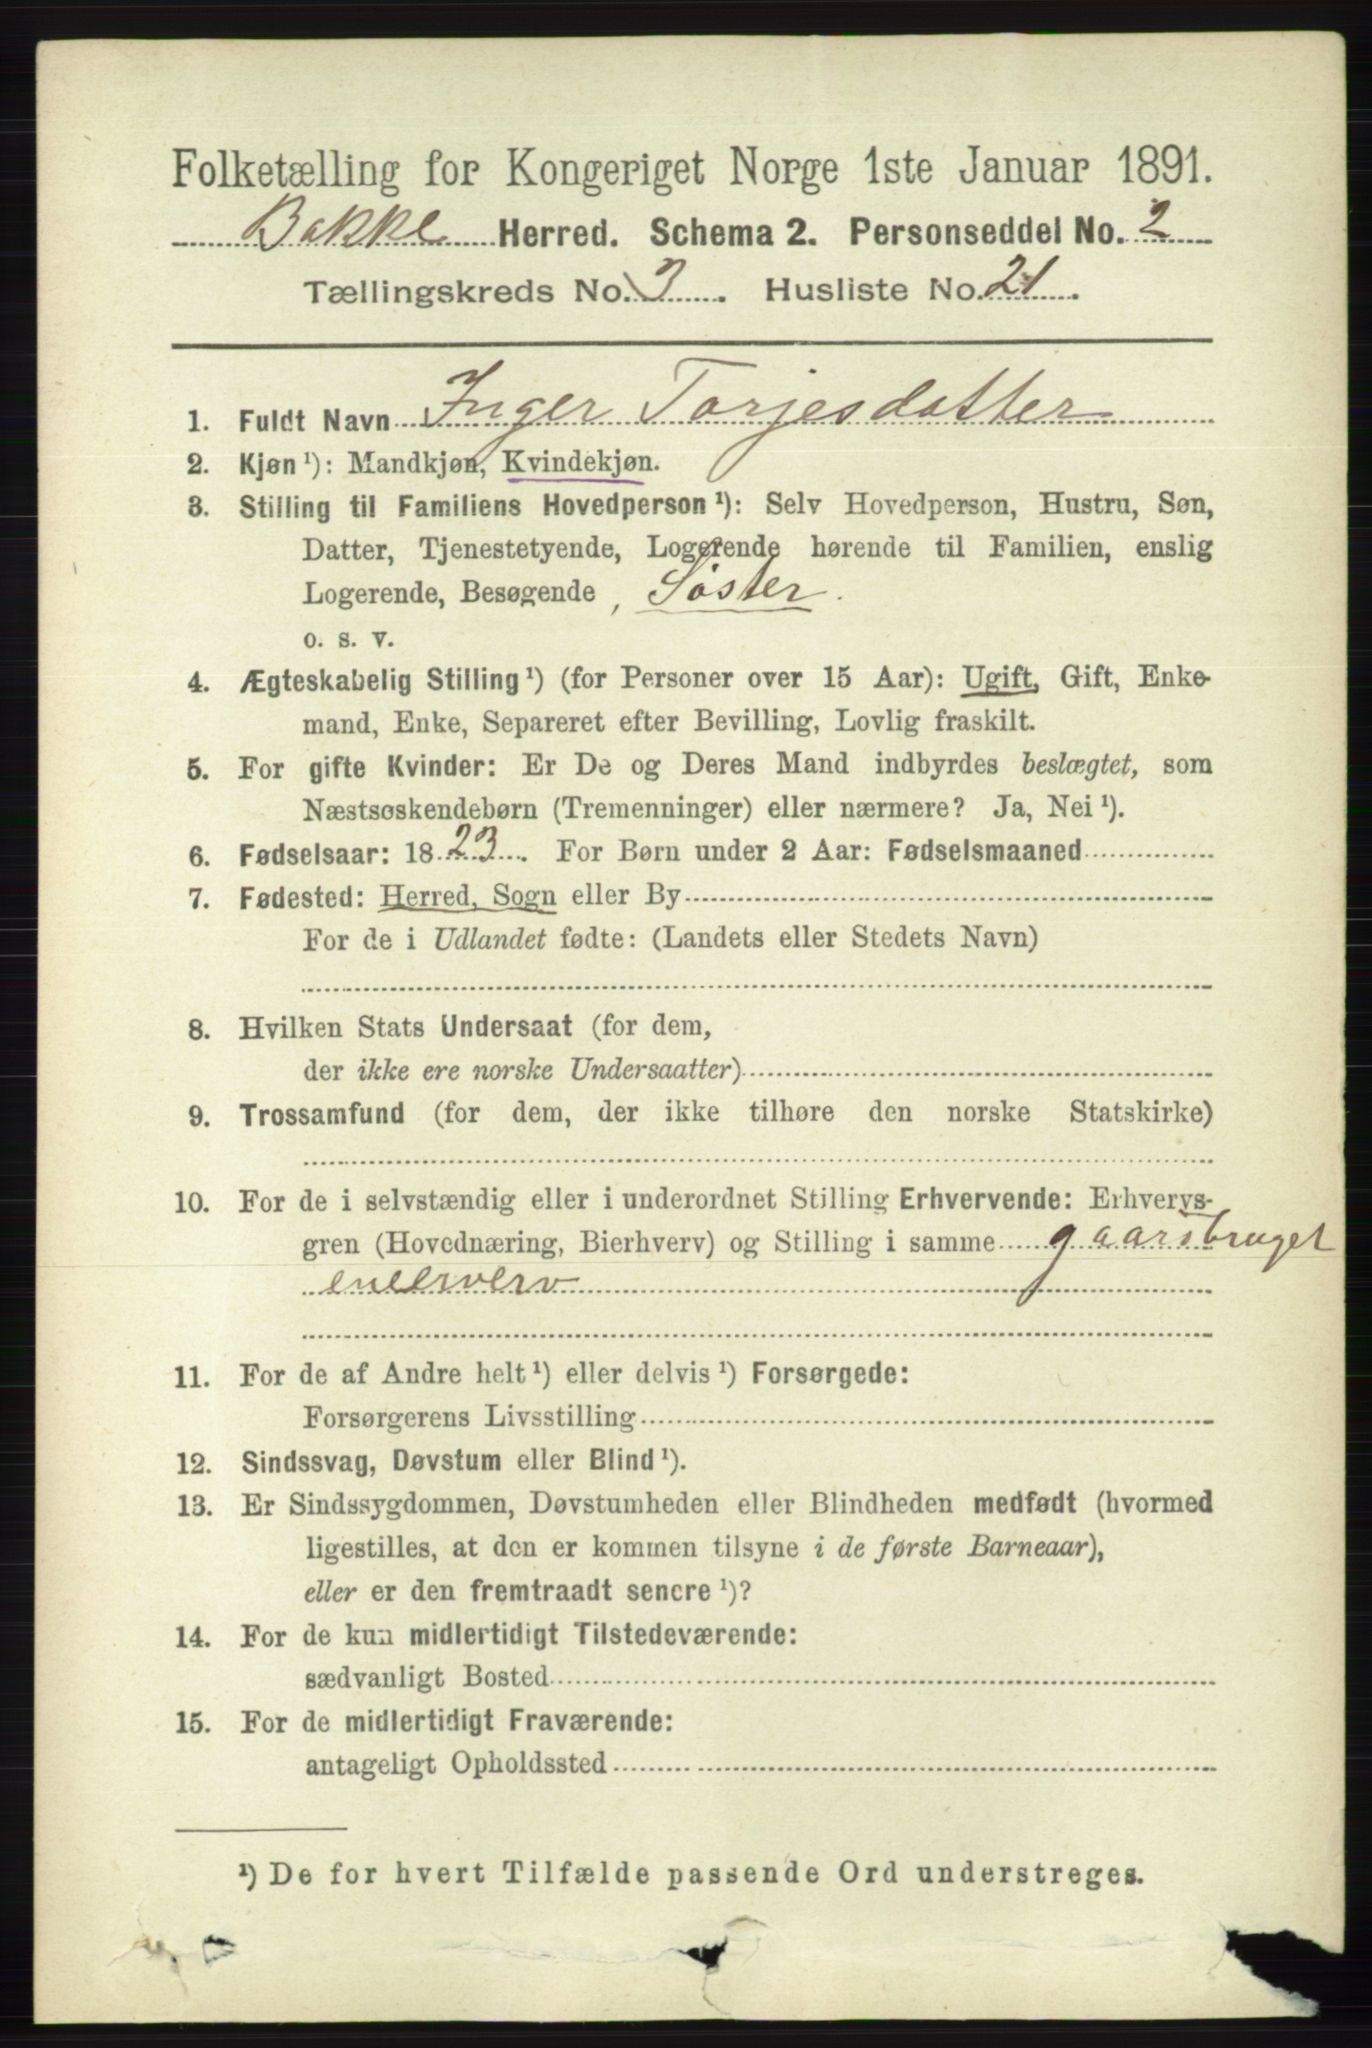 Folketælling for Kongeriget Norge 1ste Januar 1891.
Bakke Herred. Schema 2. Personseddel No. 2
Tællingskreds No. 3. Husliste No. 21.
1. Fuldt Navn Inger Torjesdatter
2. Kjøn ¹): Mandkjøn, Kvindekjøn.
3. Stilling til Familiens Hovedperson ¹): Selv Hovedperson, Hustru, Søn,
Datter, Tjenestetyende, Logerende hørende til Familien, enslig
Logerende, Besøgende, Søster.
o. s. v.
4. Ægteskabelig Stilling ¹) (for Personer over 15 Aar): Ugift, Gift, Enke-
mand, Enke, Separeret efter Bevilling, Lovlig fraskilt.
5. For gifte Kvinder: Er De og Deres Mand indbyrdes beslægtet, som
Næstsøskendebørn (Tremenninger) eller nærmere? Ja, Nei ¹).
6. Fødselsaar: 1823. For Børn under 2 Aar: Fødselsmaaned
7. Fødested: Herred, Sogn eller By
For de i Udlandet fødte: (Landets eller Stedets Navn)
8. Hvilken Stats Undersaat (for dem,
der ikke ere norske Undersaatter)
9. Trossamfund (for dem, der ikke tilhøre den norske Statskirke)
10. For de i selvstændig eller i underordnet Stilling Erhvervende: Erhvervs-
gren (Hovednæring, Bierhverv) og Stilling i samme gaarsbruget
11. For de af Andre helt ¹) eller delvis ¹) Forsørgede:
Forsørgerens Livsstilling
12. Sindssvag, Døvstum eller Blind ¹).
13. Er Sindssygdommen, Døvstumheden eller Blindheden medfødt (hvormed
ligestilles, at den er kommen tilsyne i de første Barneaar),
eller er den fremtraadt senere ¹)?
14. For de kun midlertidigt Tilstedeværende:
sædvanligt Bosted
15. For de midlertidigt Fraværende:
antageligt Opholdssted
¹) De for hvert Tilfælde passende Ord understreges.